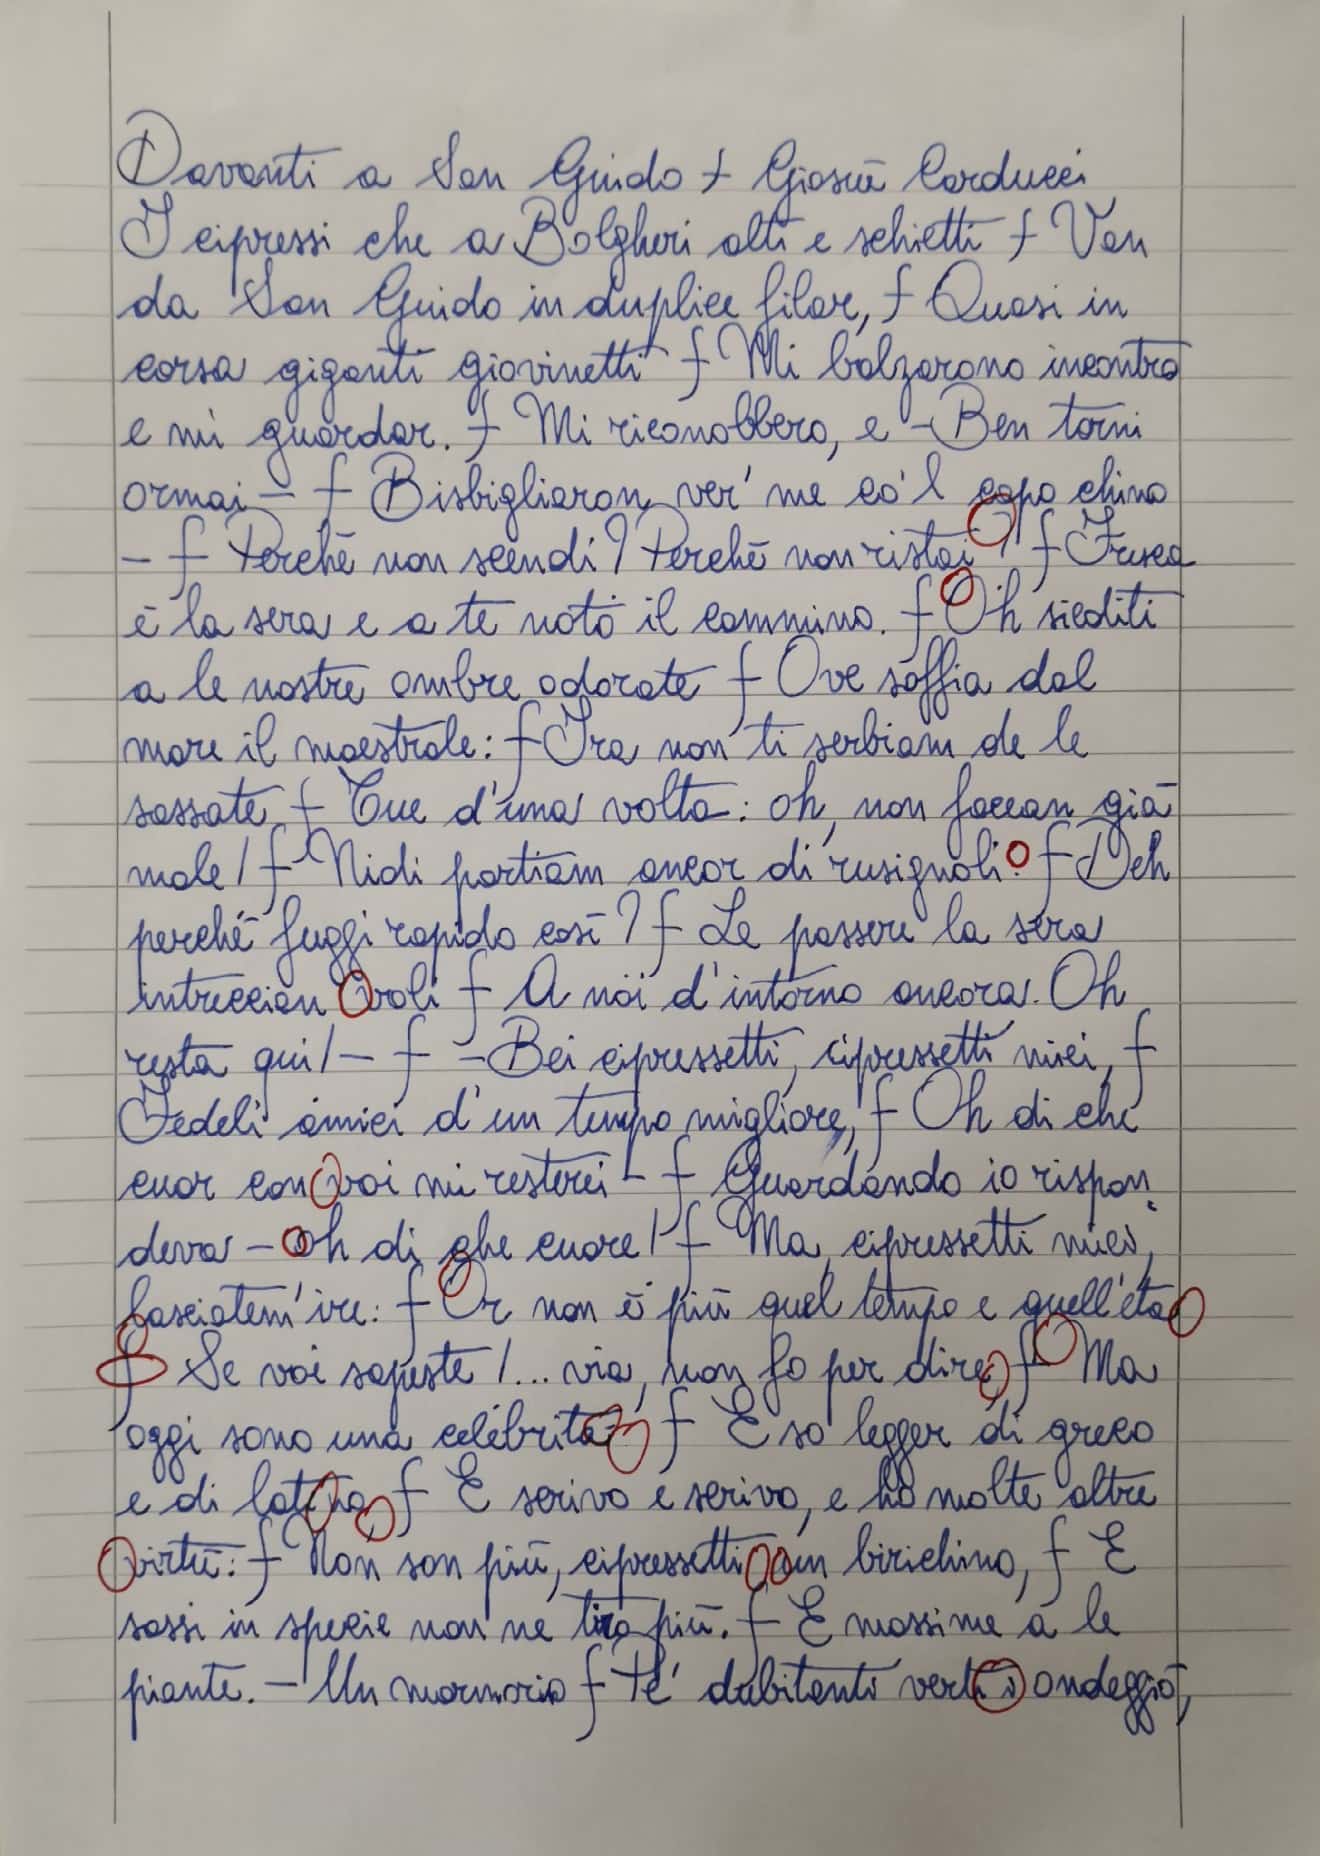 Davanti a San Guido f Giosuè Carducci
I cipressi che a Bolgheri alti e schietti f Van
da San Guido in duplice filar, f Quasi in
corsa giganti giovinetti f Mi balzarono incontro
e mi guardar. f Mi riconobbero, e - Ben torni
ormai - f Bisbigliaron ver' me co'l capo chino
- f Perché non scendi? Perché non ristai? f Fresca
è la sera e a te noto il cammino. f Oh siediti
a le nostre ombre odorate f Ove soffia dal
mare il maestrale: f Ira non ti serbiam de le
sassate f Tue d'una volta: oh, non faccan già
male! f Nidi portiam ancor di rusignoli: f Deh
perché fuggi rapido così? f Le passere la sera
intreccian voli f A noi d'intorno ancora. Oh
resta qui! - f - Bei cipressetti, cipressetti miei, f
Fedeli amici d'un tempo migliore, f Oh di che
cuor con voi mi resterei - f Guardando io rispon
deva - oh di che cuore! f Ma, cipressetti miei,
lasciatem' ire: f Or non è più quel tempo e quell'età
f Se voi sapeste!... via, non fo per dire, f Ma
oggi sono una celebrità. f E so legger di greco
e di latino, f E scrivo e scrivo, e ho molte altre
virtù: f Non son più, cipressetti, un birichino, f E
sassi in specie non ne tiro più. f E massime a le
piante. - Un mormorio f Pe' dubitanti vertici ondeggiò,